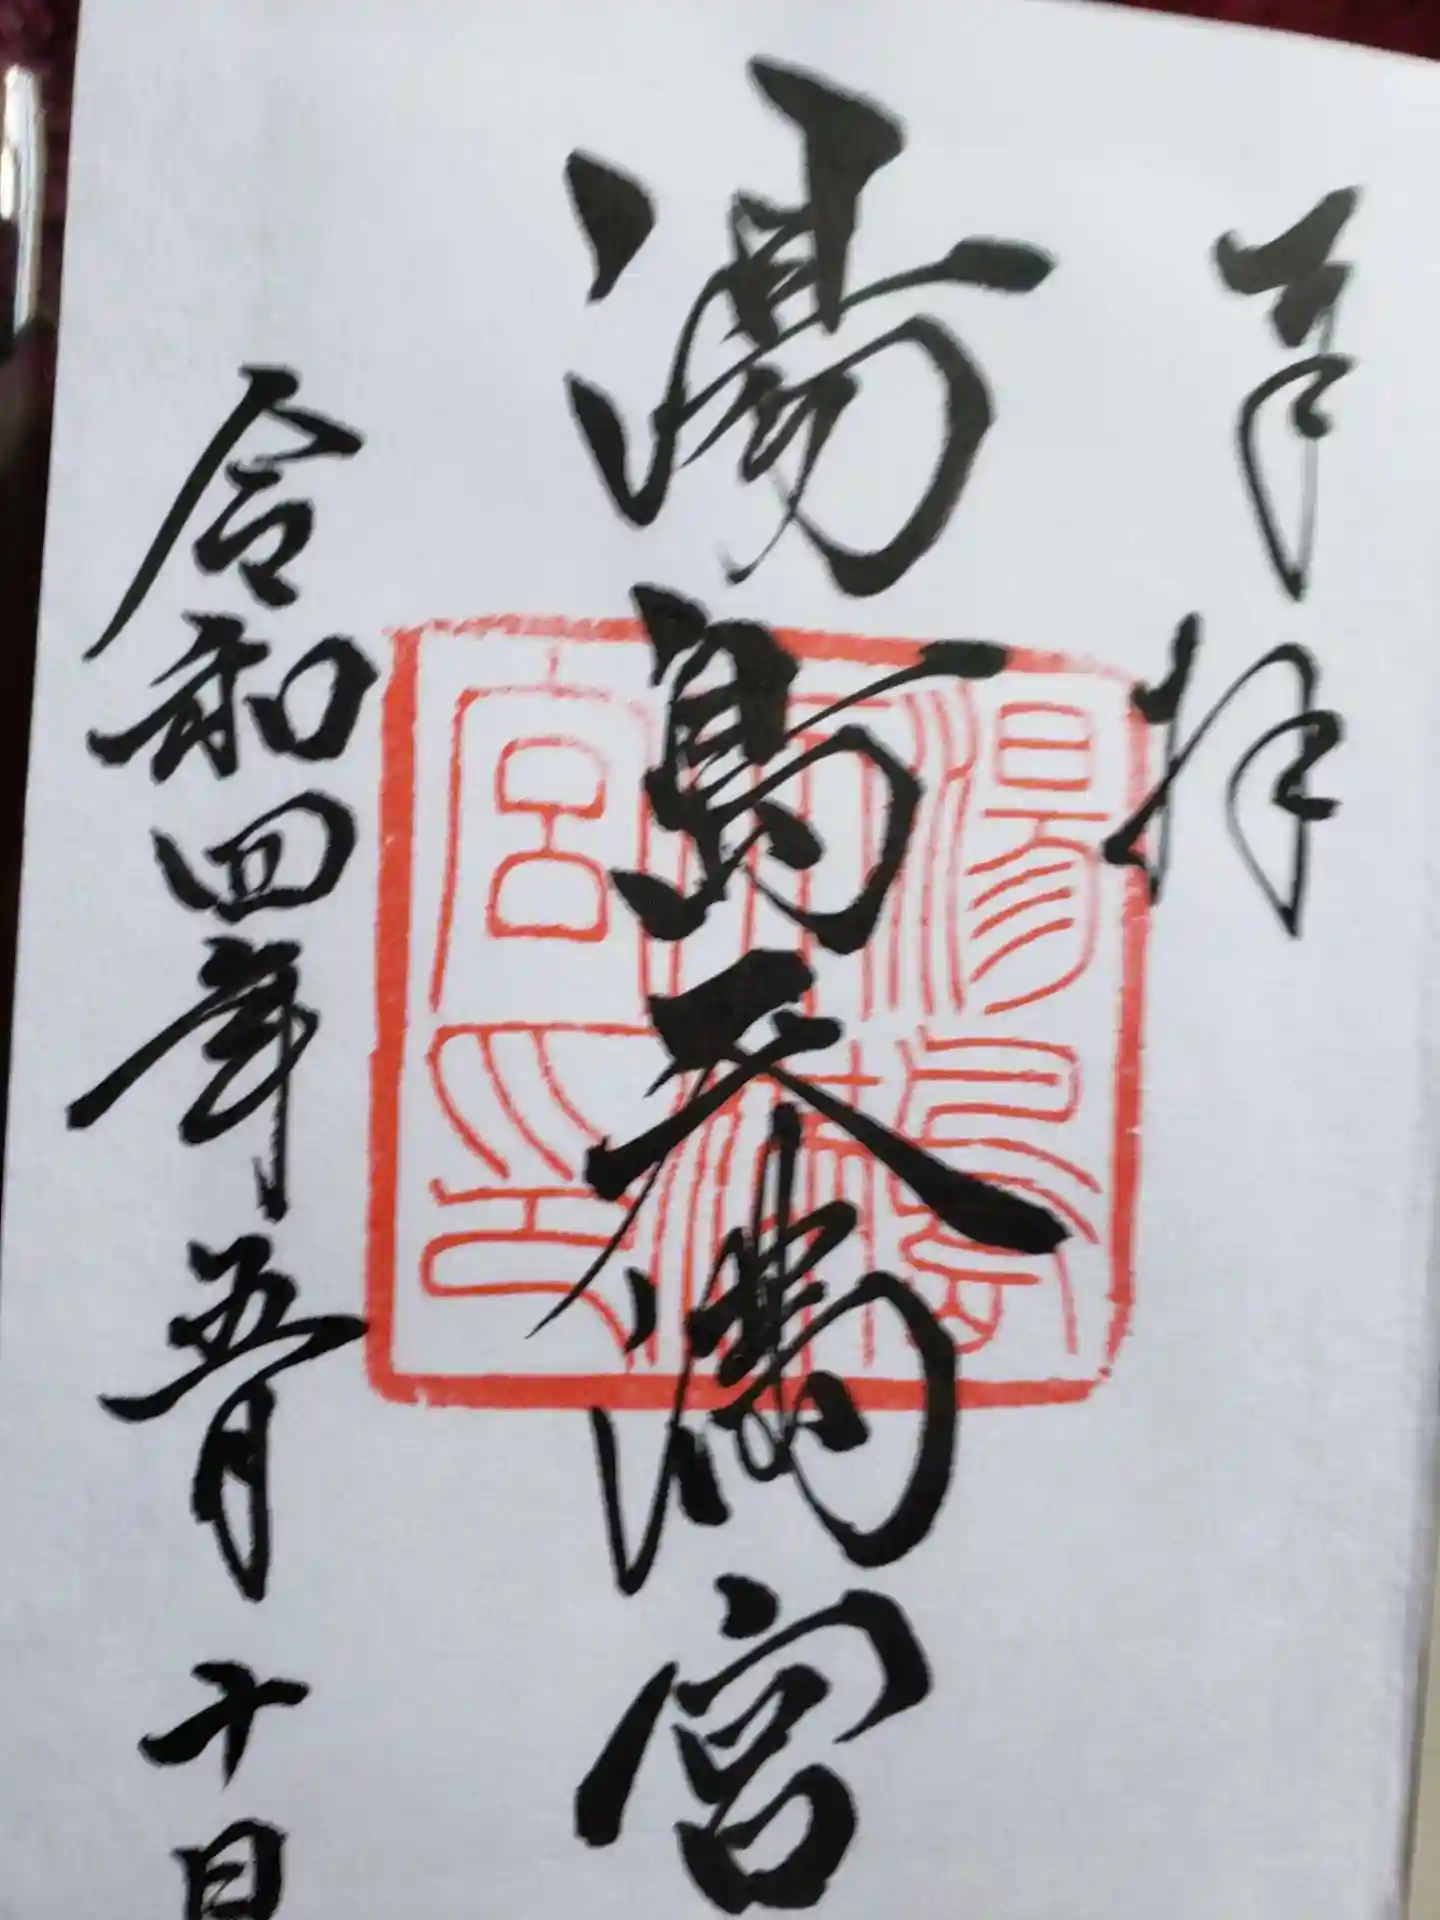 奉拝
湯島天満宮
令和四年五月十日
湯島天満宮印